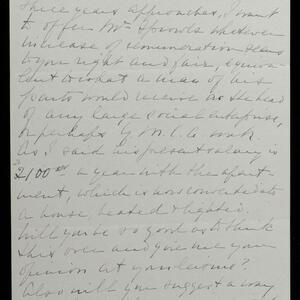 three years approaches, I want
to offer Mr. Sprowls whatever
increase of remuneration seems
to you right and fair, equiva-
lent to what a man of his
parts would receive as the head
of any large social enterprise,
or perhaps Y.M.C.A. work.
As I said his present salary is
2100.00 a year with the apart-
ment, which is now converted into
a house, heated & lighted.
Will you be so good as to think
this over and give me your
opinion at your leisure?
Also will you suggest a way